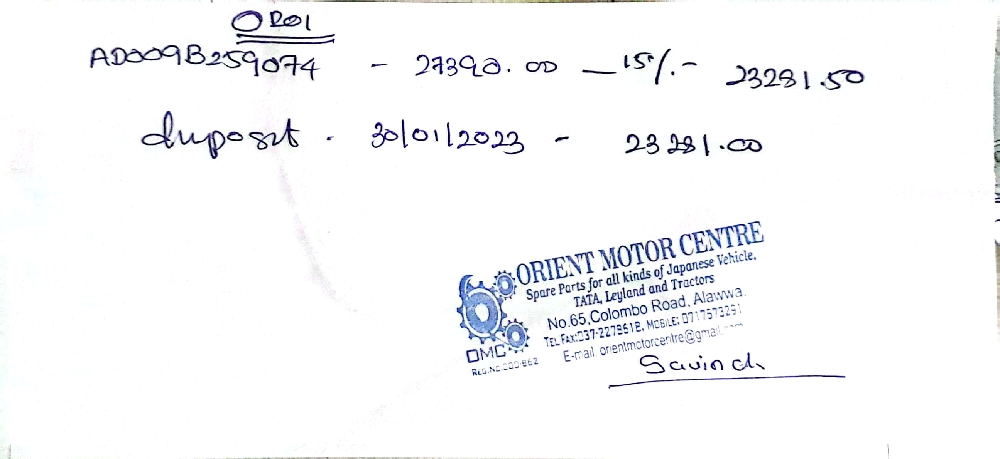 OR01
AD009B259074 - 27390.00 - 15% - 23281.50
duposit . 30/01/2023 - 23281.00
ORIENT MOTOR CENTRE
Spare Parts for all kinds of Japanese Vehicle,
TATA, Leyland and Tractors
No.65, Colombo Road, Alawwa.
TEL FAX:037-2278518, MOBILE: 0717573251
OMC
E-mail orientmotorcentre@gmail